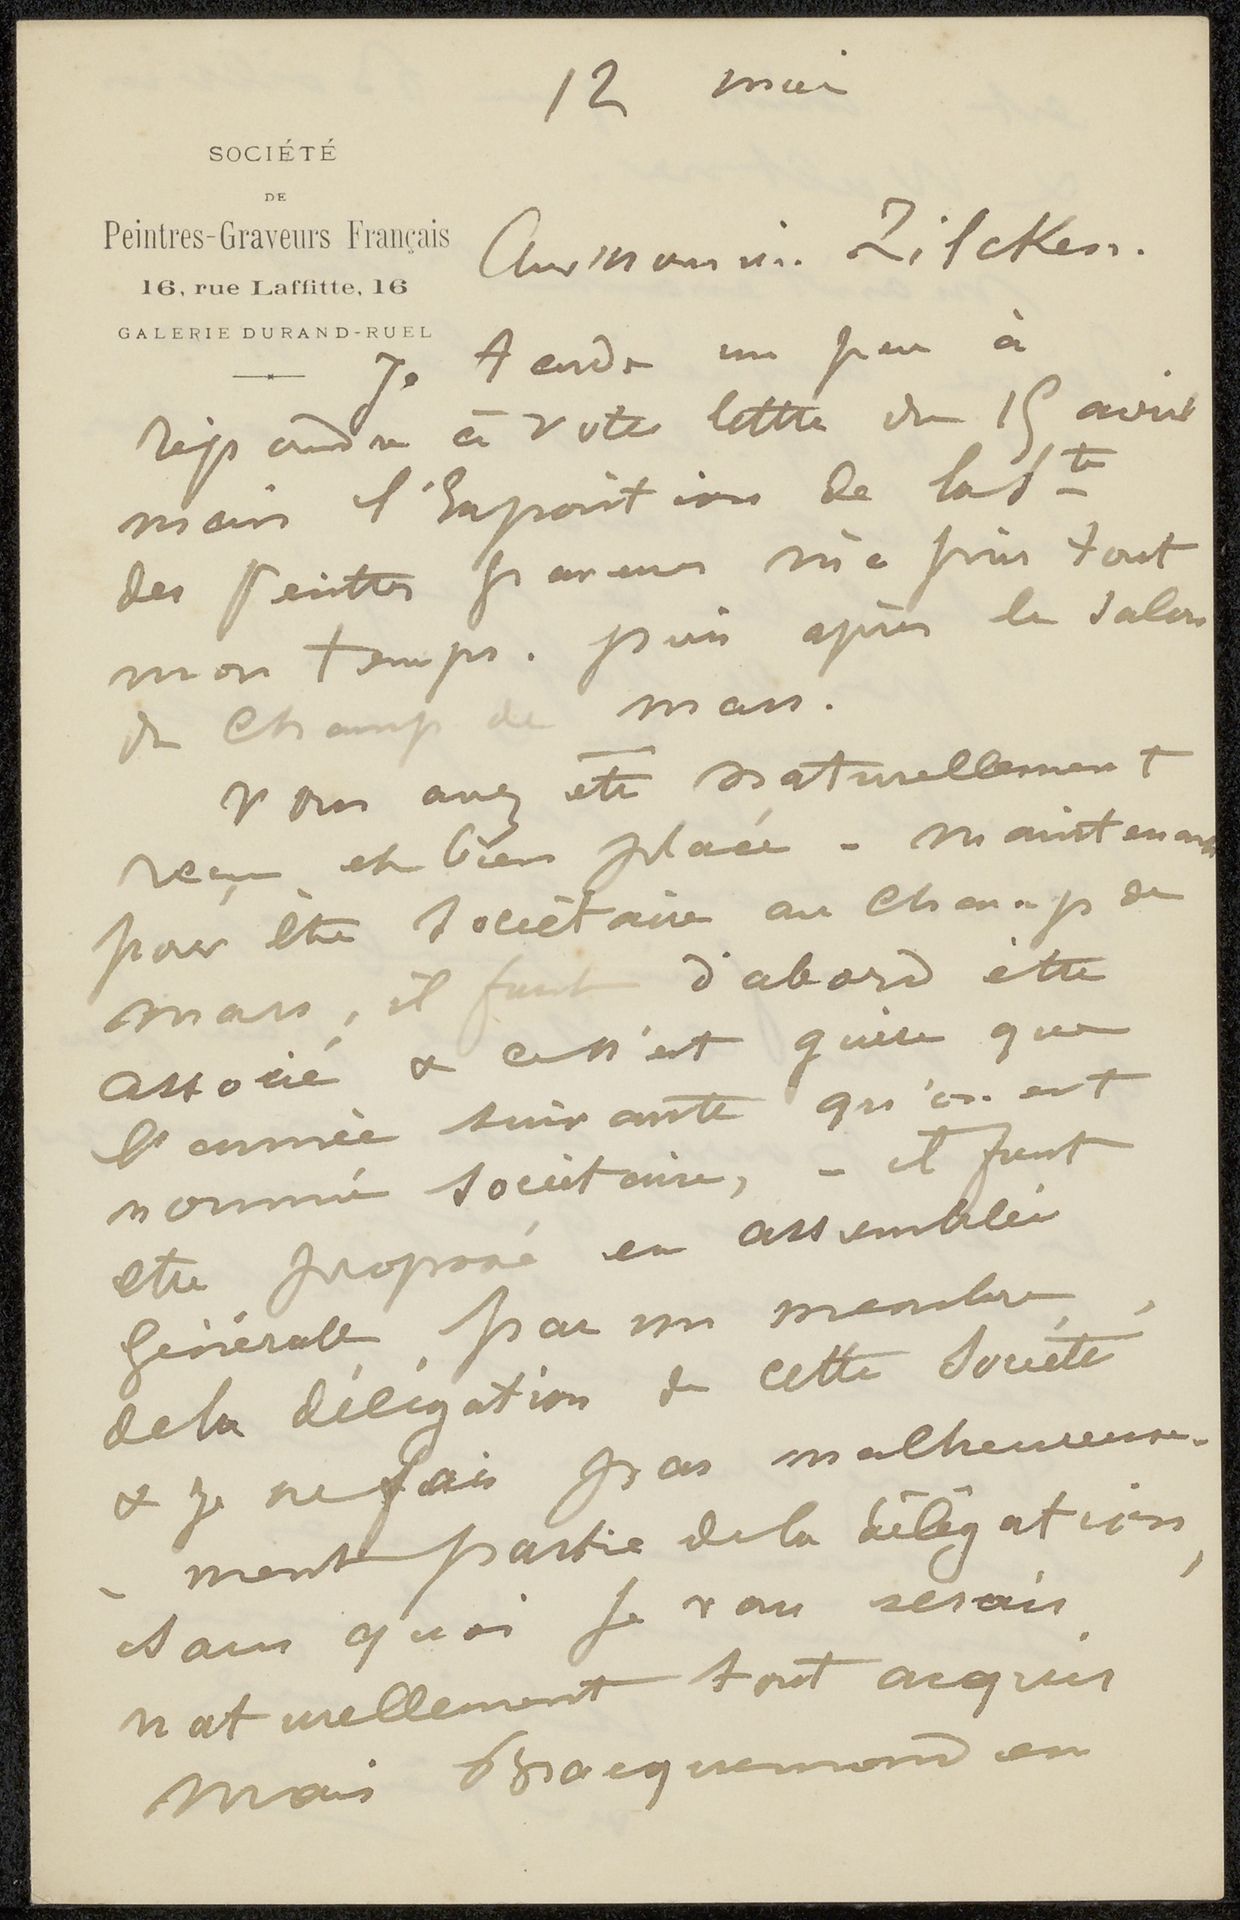 12 mai
SOCIÉTÉ
DE
Peintres-Graveurs Français
16, rue Laffitte, 16
GALERIE DURAND-RUEL
Zilcken.
Je tarde un peu à
répondre à votre lettre du 15 avril
mais l'Exposition de la Sté
des Peintres graveurs m'a pris tout
mon temps. puis après le Salon
du Champ de mars.
vous avez été naturellement
reçu et bien placé - maintenant
pour être Sociétaire au Champ de
mars, il faut d'abord être
associé & ce n'est guère que
l'année suivante qu'on est
nommé Sociétaire, - il faut
etre proposé en assemblée
Générale par un membre,
de la délégation de cette Société
& je ne fais pas malheureuse-
- ment partie de la délégation,
sans quoi je vous serais
naturellement tout acquis
Mais Bracquemond en